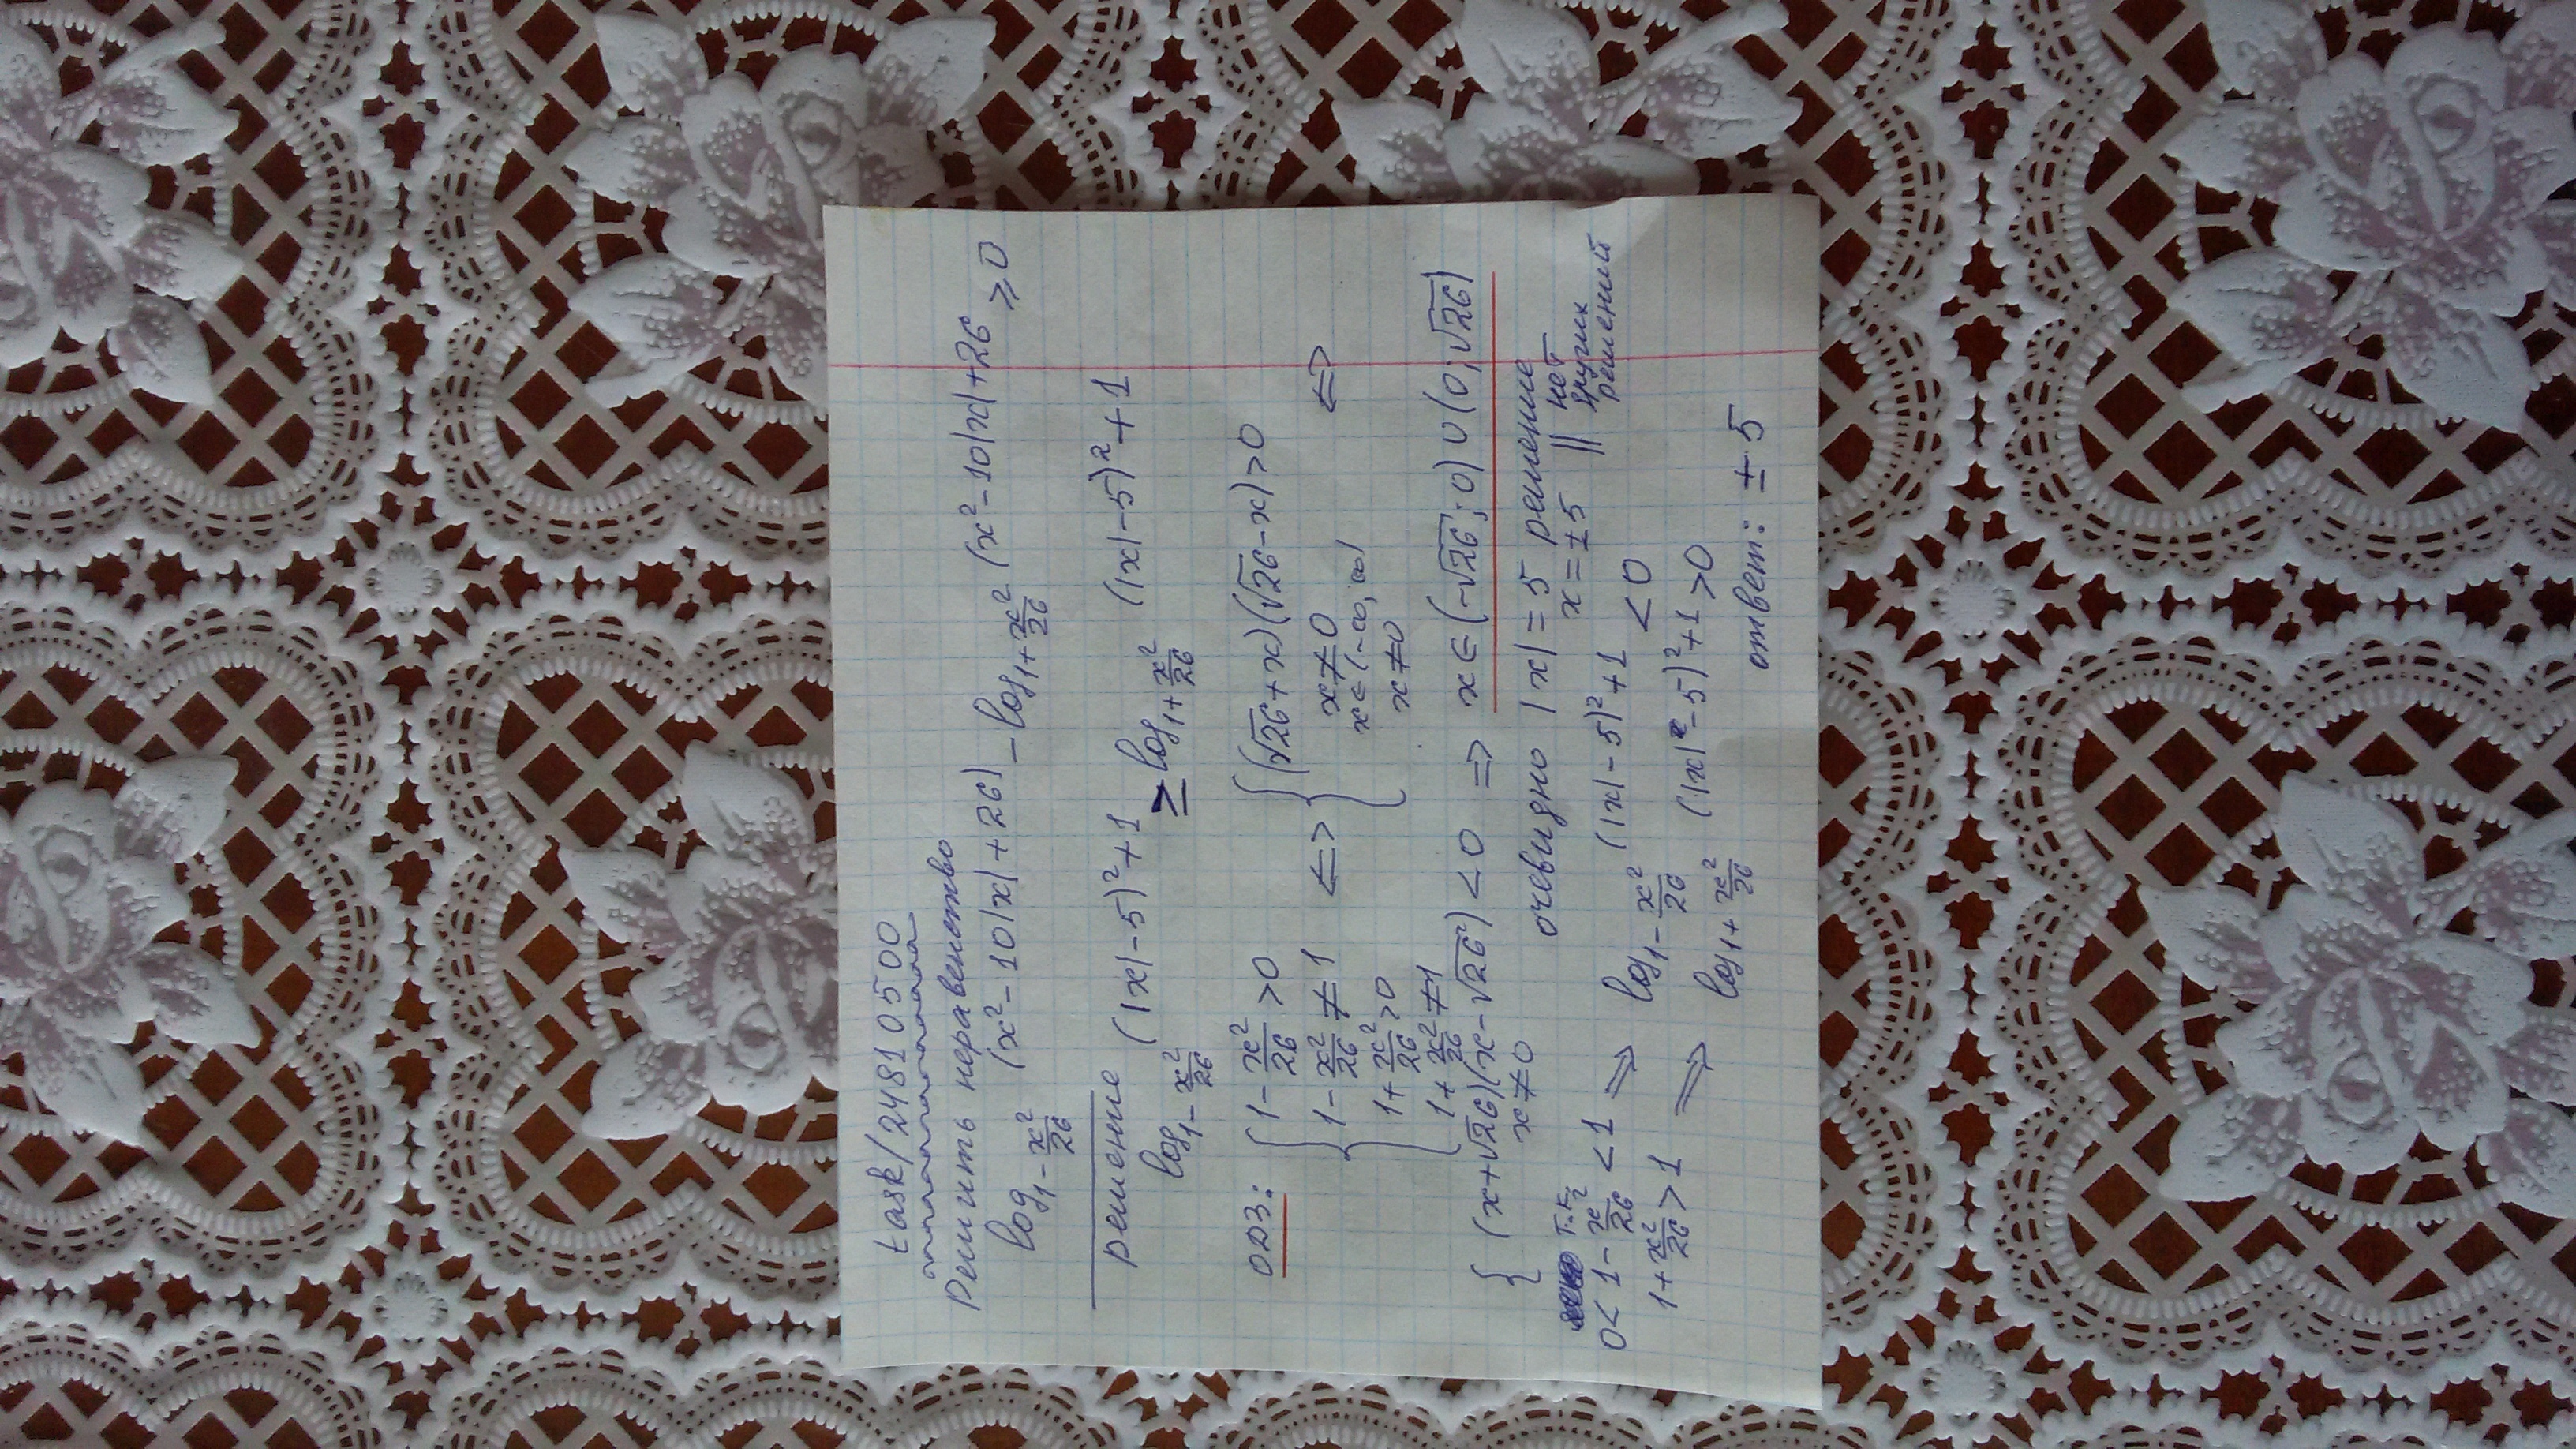 task/24810500
Решить неравенство
log₁₋ₓ²/₂₆ (x²-10|x|+26) - log₁₊ₓ²/₂₆ (x²-10|x|+26) ≥ 0
решение
log₁₋ₓ²/₂₆ (|x|-5)²+1 ≥ log₁₊ₓ²/₂₆ (|x|-5)²+1
ОДЗ: { 1-x²/26 >0 <=> { (√26+x)(√26-x)>0
1-x²/26 ≠1 x≠0 <=>
1+x²/26 >0 x∈(-∞,∞)
1+x²/26 ≠1 x≠0
{ (x+√26)(x-√26)<0 => x∈(-√26;0)∪(0;√26)
x≠0
очевидно |x|=5 решение
x=±5 || нет других решений
т.к.
0<1-x²/26<1 => log₁₋ₓ²/₂₆ (|x|-5)²+1 <0
1+x²/26>1 => log₁₊ₓ²/₂₆ (|x|-5)²+1 >0
ответ: ±5